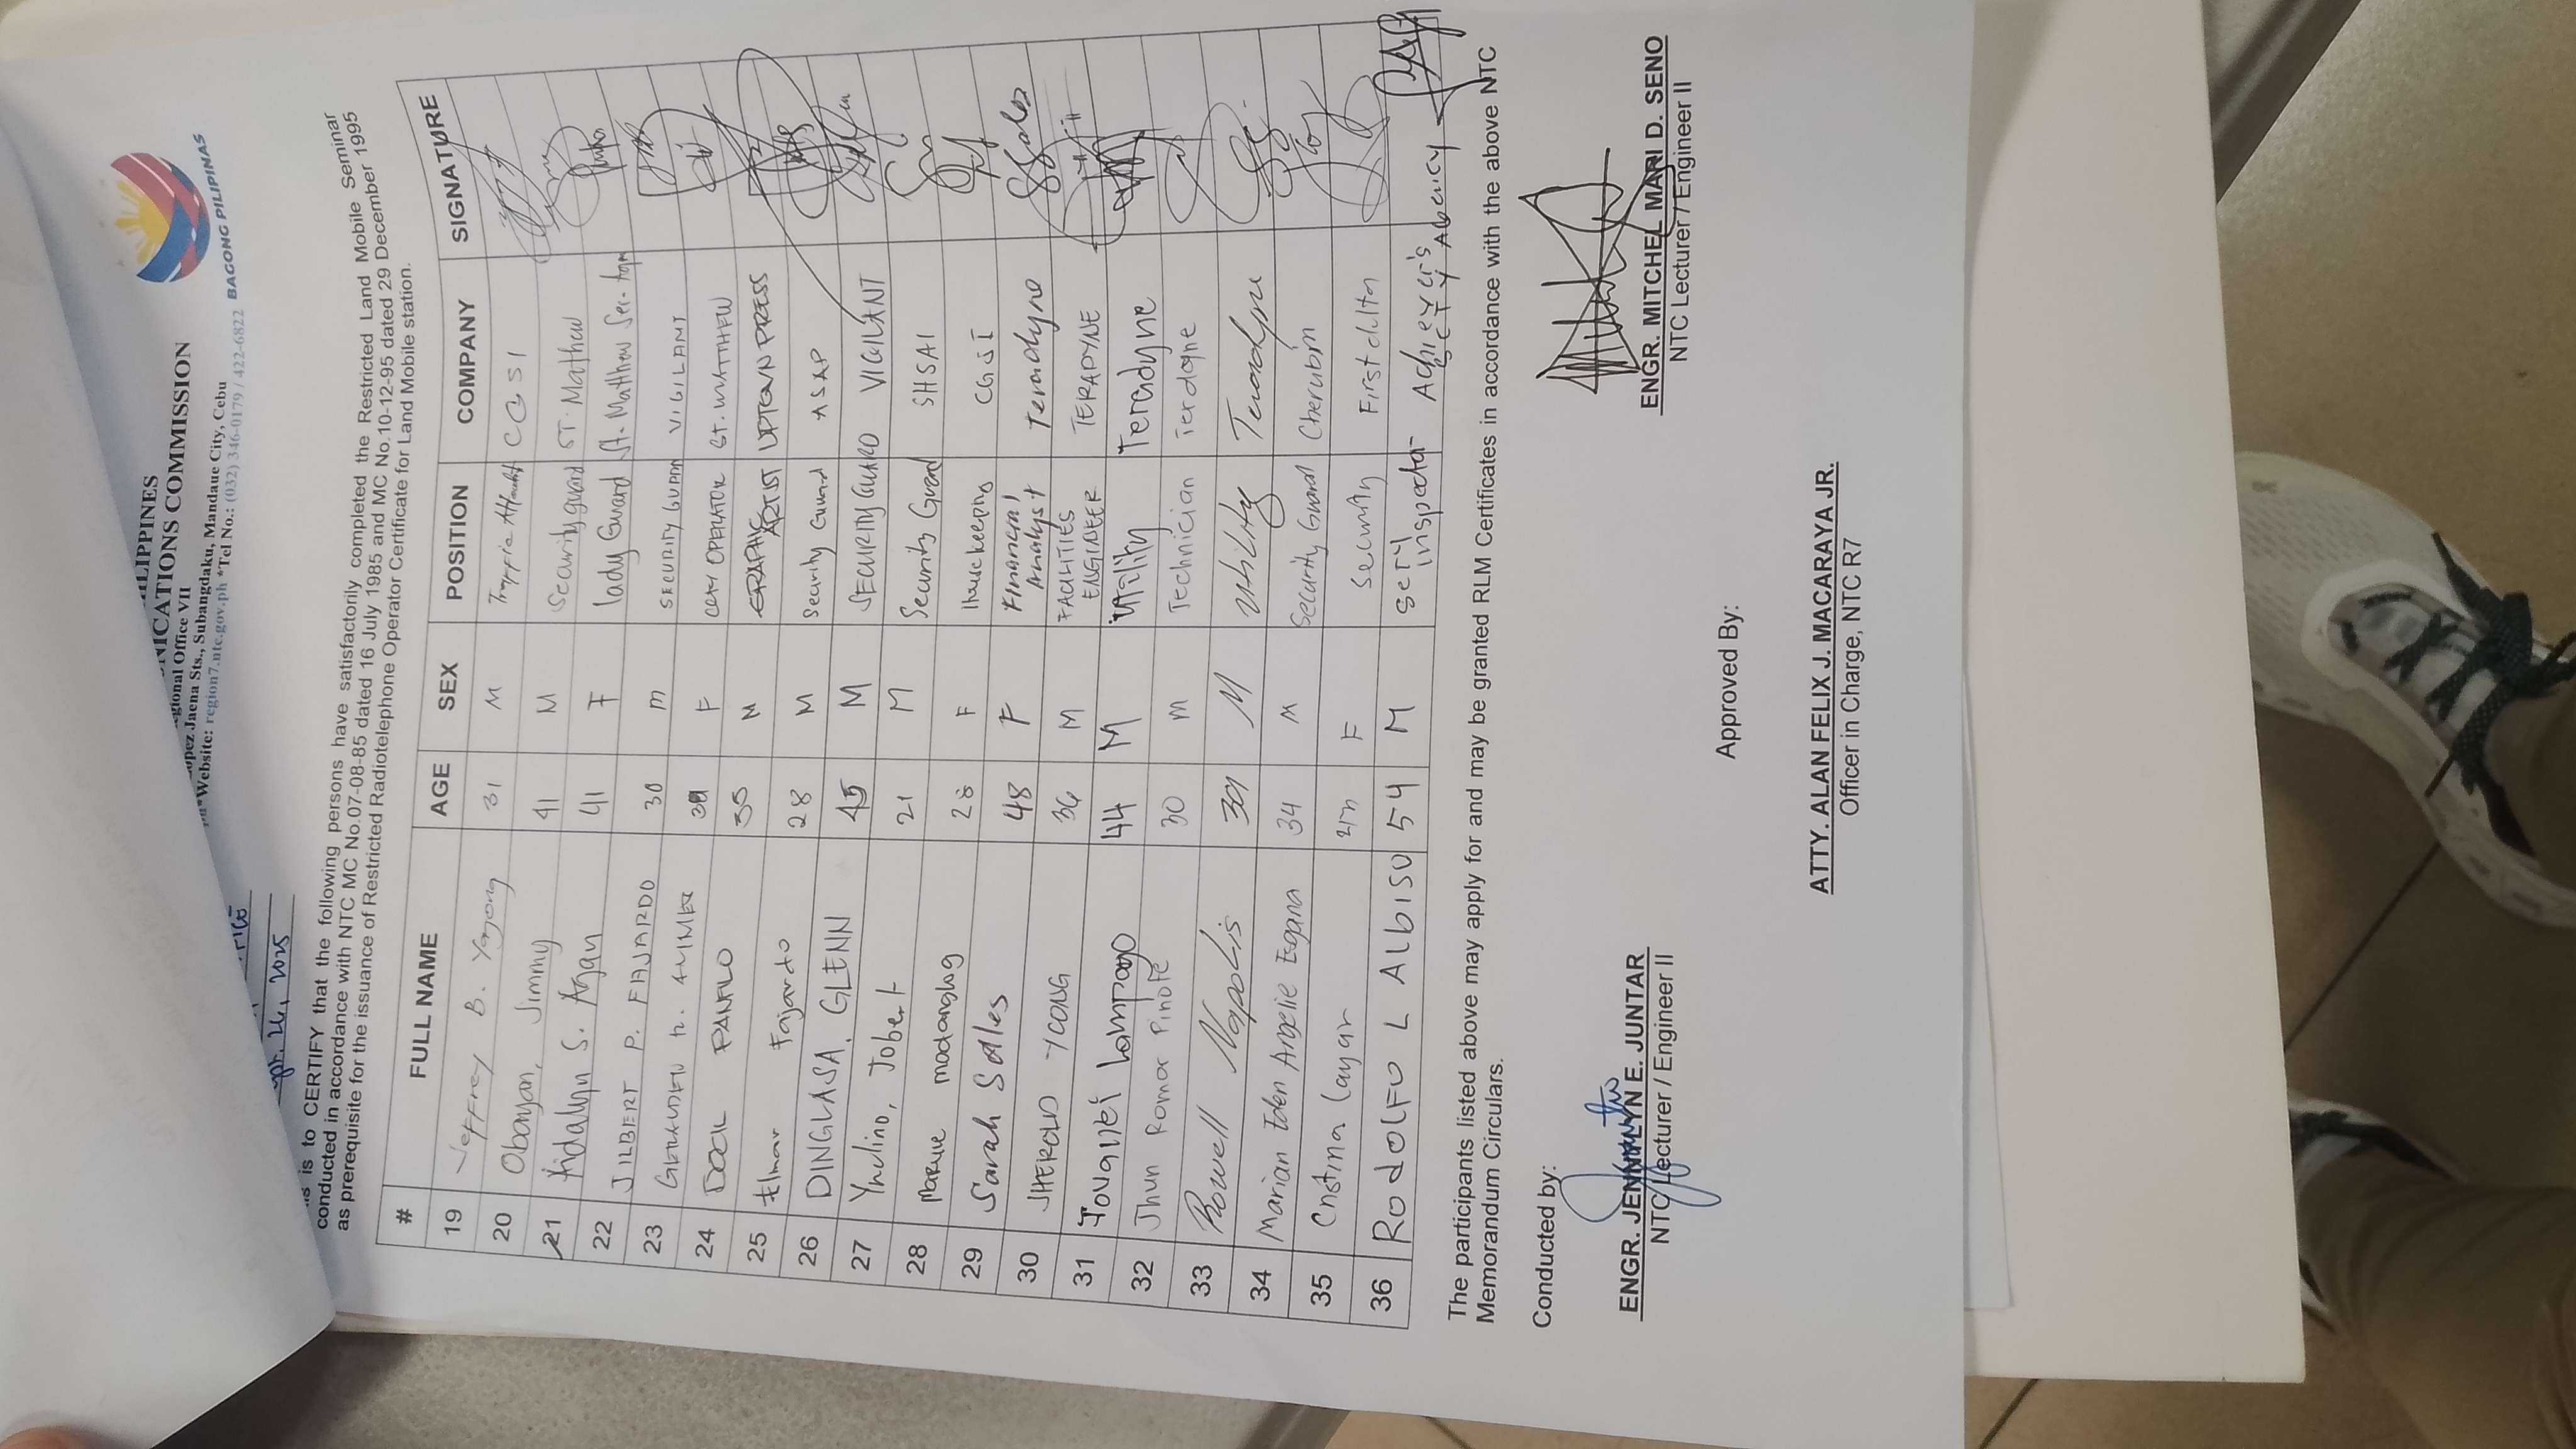 ILIPPINES
NICATIONS COMMISSION
gional Office VII
opez Jaena Sts., Subangdaku, Mandaue City, Cebu
Website: region7.ntc.gov.ph *Tel No.: (032) 346-0179 / 422-6822
BAGONG PILIPINAS
2025
is is to CERTIFY that the following persons have satisfactorily completed the Restricted Land Mobile Seminar
conducted in accordance with NTC MC No.07-08-85 dated 16 July 1985 and MC No.10-12-95 dated 29 December 1995
as prerequisite for the issuance of Restricted Radiotelephone Operator Certificate for Land Mobile station.
# FULL NAME AGE SEX POSITION COMPANY SIGNATURE
19 Jeffrey B. Yagong 31 M CGSI
20 Obanyan, Jimmy 41 M Security guard ST. Mathew
21 S. Agan 41 F lady Guard St. Matthew Sec.
22 JILBERT P. FAJARDO 30 m SECURITY GUARD VIGILANT
23 F CCTV OPERATOR St. MATTHEW
24 PANFILO 35 M GRAPHIC ARTIST UPTOWN PRESS
25 Elmar Fajardo 28 M Security Guard ASAP
26 DINGLASA, GLENN 45 M SECURITY GUARD VIGILANT
27 Ynclino, Jobert 21 M Security Guard SHSAI
28 28 F Housekeeping CGSI
29 Sarah Salles 48 F Financial Analyst Teradyne
30 JHEROLD YCONG 36 M FACILITIES ENGINEER TERADYNE
31 Lampago 44 M Utility Teradyne
32 Jhun Romar Pinote 30 m Technician Teradyne
33 Rowell Napolis 39 M Utility Teradyne
34 Marian Eden Angelie Egana 34 M Security Guard Cherubim
35 Cristina Layar F Security First
36 RodolFo L Albiso 54 M Inspector Achiever's Agency
The participants listed above may apply for and may be granted RLM Certificates in accordance with the above NTC
Memorandum Circulars.
Conducted by:
ENGR. JENNALYN E. JUNTAR
NTC Lecturer / Engineer II
ENGR. MITCHEL MARI D. SENO
NTC Lecturer / Engineer II
Approved By:
ATTY. ALAN FELIX J. MACARAYA JR.
Officer in Charge, NTC R7